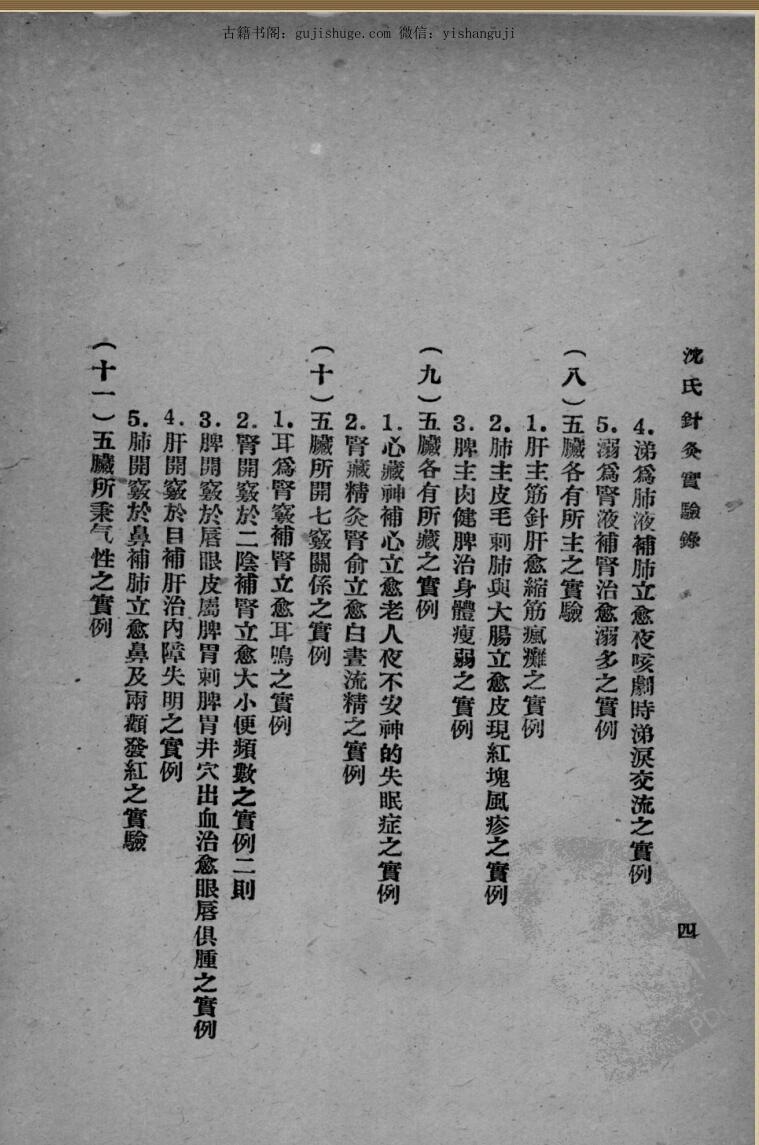 古籍书阁：gujishuge.com 微信：yishanguji
沈氏針灸實驗錄
四
4.涕爲肺液補肺立愈夜咳劇時涕淚交流之實例
5.溺爲腎液補腎治愈溺多之實例
（八）五臟各有所主之實驗
1.肝主筋針肝愈縮筋瘋癱之實例
2.肺主皮毛刺肺與大腸立愈皮現紅塊風疹之實例
3.脾主肉健脾治身體瘦弱之實例
（九）五臟各有所藏之實例
1.心藏神補心立愈老人夜不安神的失眠症之實例
2.腎藏精灸腎俞立愈白晝流精之實例
（十）五臟所開七竅關係之實例
1.耳爲腎竅補腎立愈耳鳴之實例
2.腎開竅於二陰補腎立愈大小便頻數之實例二則
3.脾開竅於唇眼皮屬脾胃刺脾胃井穴出血治愈眼唇俱腫之實例
4.肝開竅於目補肝治內障失明之實例
5.肺開竅於鼻補肺立愈鼻及兩顴發紅之實驗
（十一）五臟所秉气性之實例
PDF